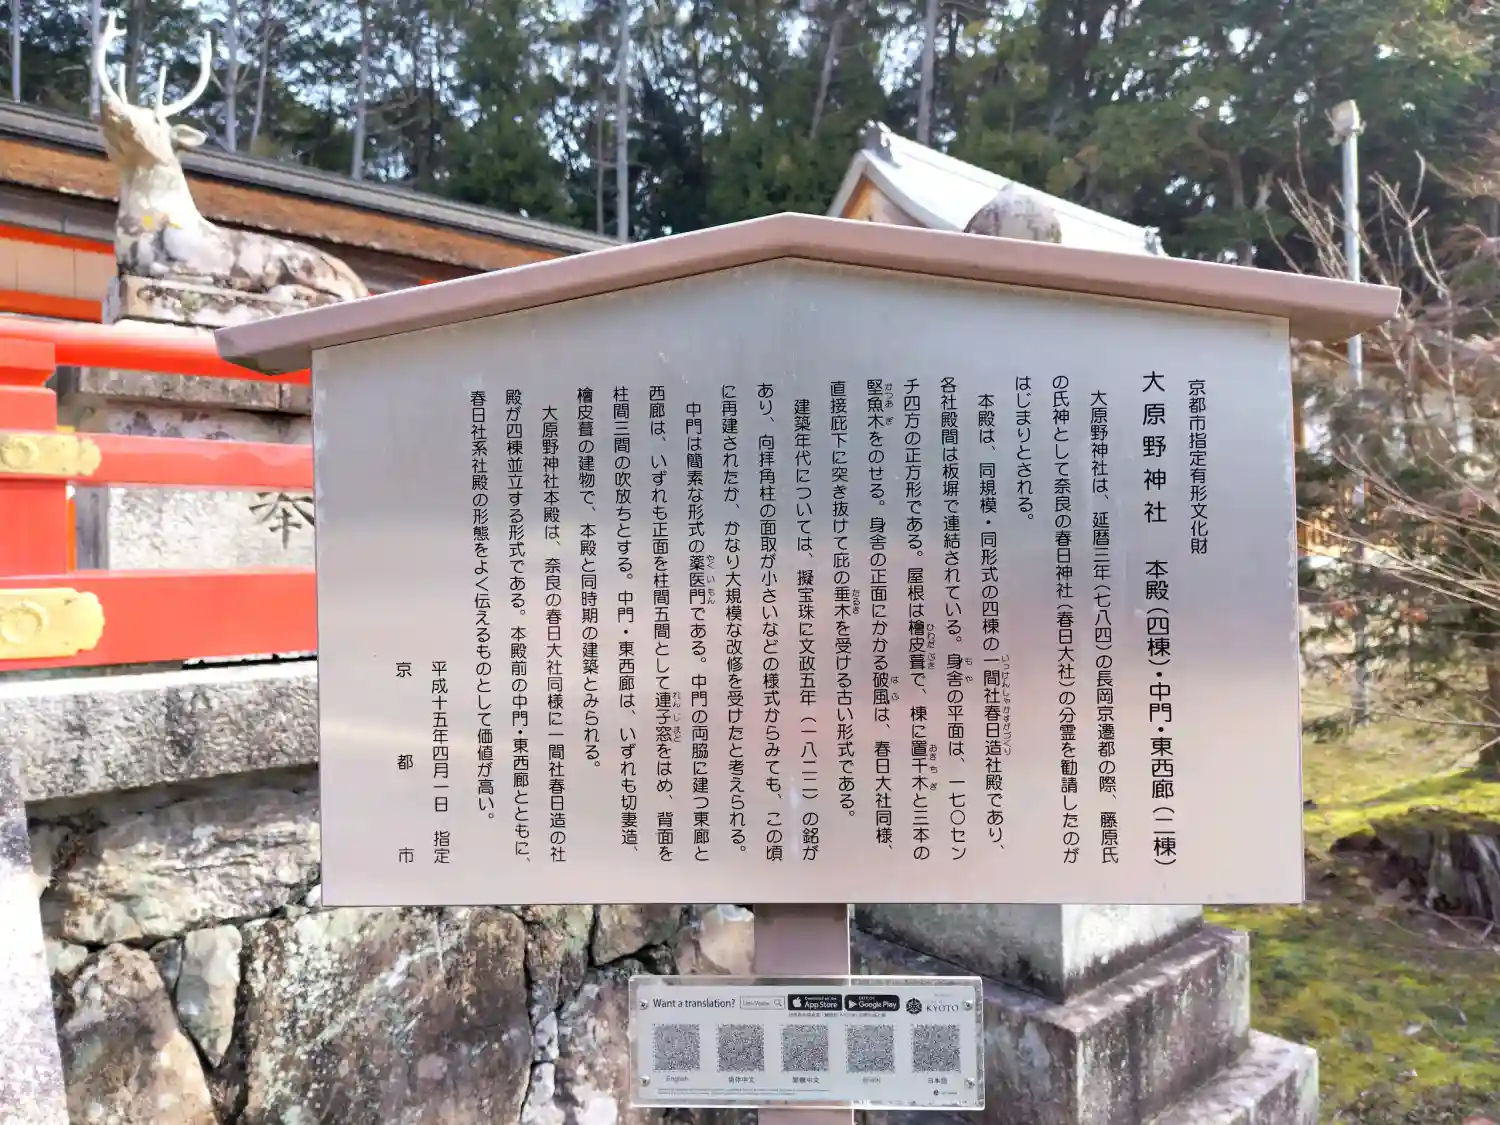 京都市指定有形文化財
大原野神社　本殿（四棟）・中門・東西廊（二棟）
大原野神社は、延暦三年（七八四）の長岡京遷都の際、藤原氏
の氏神として奈良の春日神社（春日大社）の分霊を勧請したのが
はじまりとされる。
本殿は、同規模・同形式の四棟の一間社春日造社殿であり、
いっけんしゃかすがづくり
各社殿間は板塀で連結されている。身舎の平面は、一七〇セン
もや
チ四方の正方形である。屋根は檜皮葺で、棟に置千木と三本の
ひわだぶき
おきちぎ
堅魚木をのせる。身舎の正面にかかる破風は、春日大社同様、
かつおぎ
はふ
直接庇下に突き抜けて庇の垂木を受ける古い形式である。
たるき
建築年代については、擬宝珠に文政五年（一八二二）の銘が
あり、向拝角柱の面取が小さいなどの様式からみても、この頃
に再建されたか、かなり大規模な改修を受けたと考えられる。
中門は簡素な形式の薬医門である。中門の両脇に建つ東廊と
やくいもん
西廊は、いずれも正面を柱間五間として連子窓をはめ、背面を
れんじまど
柱間三間の吹放ちとする。中門・東西廊は、いずれも切妻造、
檜皮葺の建物で、本殿と同時期の建築とみられる。
大原野神社本殿は、奈良の春日大社同様に一間社春日造の社
殿が四棟並立する形式である。本殿前の中門・東西廊とともに、
春日社系社殿の形態をよく伝えるものとして価値が高い。
平成十五年四月一日　指定
京都市
奉
Want a translation?
App Store
Google Play
KYOTO
English
简体中文
繁體中文
한국어
日本語